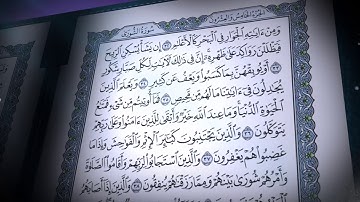 الجزء الخامس والعشرون
سورة الشورى
وَمِنْ ءَايَٰتِهِ ٱلْجَوَارِ فِى ٱلْبَحْرِ كَٱلْأَعْلَٰمِ ٣٢ إِن يَشَأْ يُسْكِنِ ٱلرِّيحَ
فَيَظْلَلْنَ رَوَاكِدَ عَلَىٰ ظَهْرِهِۦٓ إِنَّ فِى ذَٰلِكَ لَءَايَٰتٍ لِّكُلِّ صَبَّارٍ شَكُورٍ
٣٣ أَوْ يُوبِقْهُنَّ بِمَا كَسَبُوا۟ وَيَعْفُ عَن كَثِيرٍ ٣٤ وَيَعْلَمَ ٱلَّذِينَ
يُجَٰدِلُونَ فِىٓ ءَايَٰتِنَا مَا لَهُم مِّن مَّحِيصٍ ٣٥ فَمَآ أُوتِيتُم مِّن شَىْءٍ فَمَتَٰعُ
ٱلْحَيَوٰةِ ٱلدُّنْيَا وَمَا عِندَ ٱللَّهِ خَيْرٌ وَأَبْقَىٰ لِلَّذِينَ ءَامَنُوا۟ وَعَلَىٰ رَبِّهِمْ
يَتَوَكَّلُونَ ٣٦ وَٱلَّذِينَ يَجْتَنِبُونَ كَبَٰٓئِرَ ٱلْإِثْمِ وَٱلْفَوَٰحِشَ وَإِذَا مَا
غَضِبُوا۟ هُمْ يَغْفِرُونَ ٣٧ وَٱلَّذِينَ ٱسْتَجَابُوا۟ لِرَبِّهِمْ وَأَقَامُوا۟ ٱلصَّلَوٰةَ
وَأَمْرُهُمْ شُورَىٰ بَيْنَهُمْ وَمِمَّا رَزَقْنَٰهُمْ يُنفِقُونَ ٣٨ وَٱلَّذِينَ إِذَآ أَصَابَهُمُ